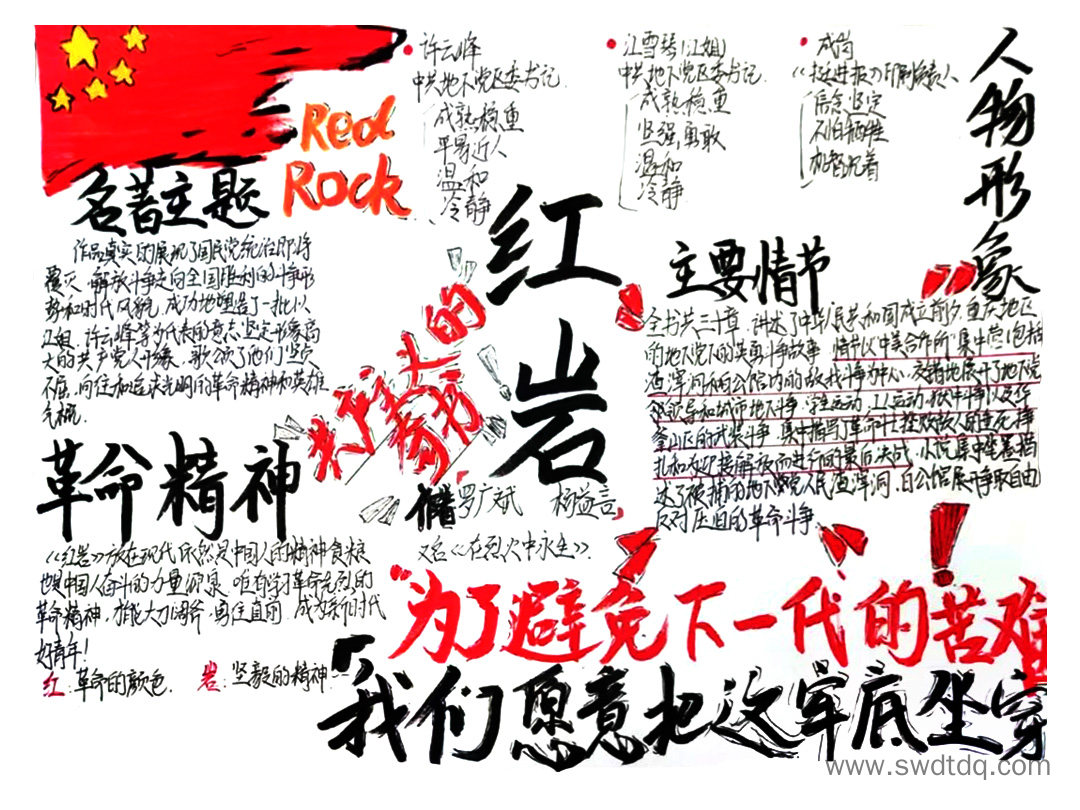 Red
Rock
名著主题
作品真实的展现了国民党统治即将
覆灭、解放斗争走向全国胜利的斗争形
势和时代风貌,成功地塑造了一批以
江姐、许云峰等为代表的意志坚定形象高
大的共产党人形象,歌颂了他们坚贞
不屈,向往和追求光明的革命精神和英雄
气概
革命精神
《红岩》放在现代依然是中国人的精神食粮
也是中国人奋斗的力量源泉,唯有学习革命先烈的
革命精神,才能大刀阔斧,勇往直前,成为新时代
好青年!
红:革命的颜色. 岩:坚毅的精神.
许云峰
中共地下党区委书记
成熟稳重
平易近人
温和
冷静
江雪琴(江姐)
中共地下党区委书记.
成熟稳重
坚强勇敢
温和
冷静
成岗
《挺进报》印刷负责人
信念坚定
不怕牺牲
机智沉着
人物形象
红岩
罗广斌 杨益言
又名《在烈火中永生》.
主要情节
全书共三十章,讲述了中华人民共和国成立前夕,重庆地区
的地下党下的英勇斗争故事 情节以“中美合作所”集中营(包括
渣滓洞和白公馆内的敌我斗争为中心,交错地展开了地下党
领导和城市地下斗争、学生运动、工人运动、狱中斗争以及华
蓥山区的武装斗争,集中描写了革命
扎和为迎接解放而进行的最后决战,小说集中笔墨描
述了被捕的地下党人民渣滓洞、白公馆展开争取自由
反对压迫的革命斗争
“为了避免下一代的苦难
我们愿意把这牢底坐穿
www.swdtdq.com